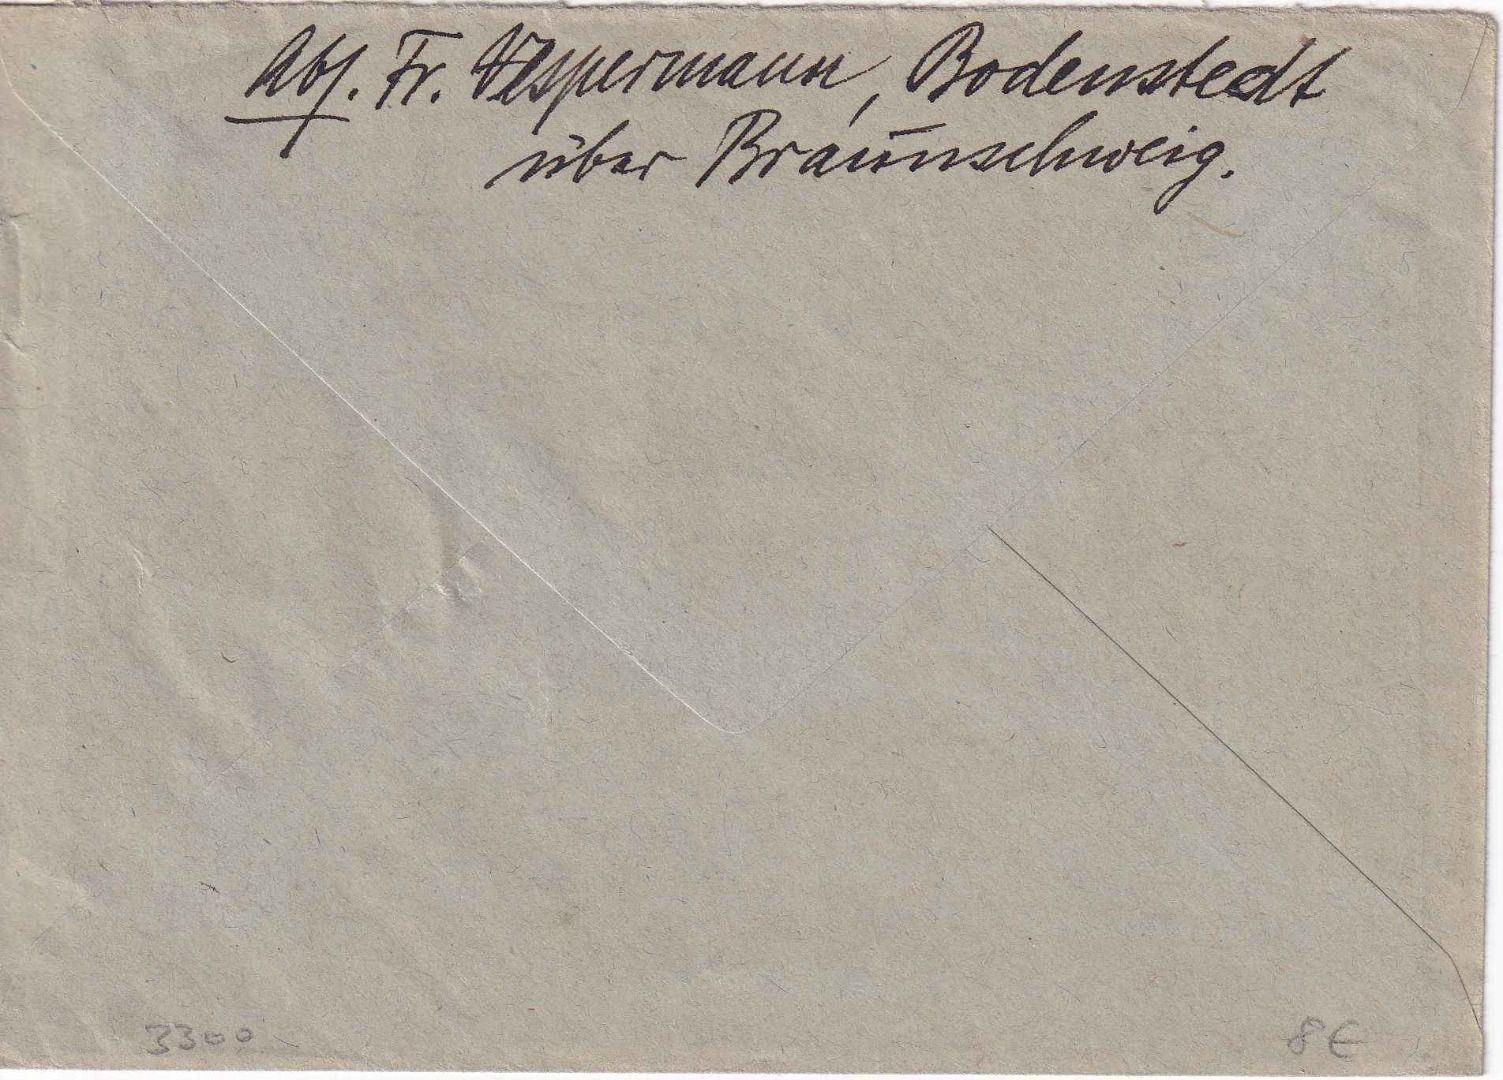 Abs. Fr. Vespermann, Bodenstedt
über Braunschweig.
3300
8€